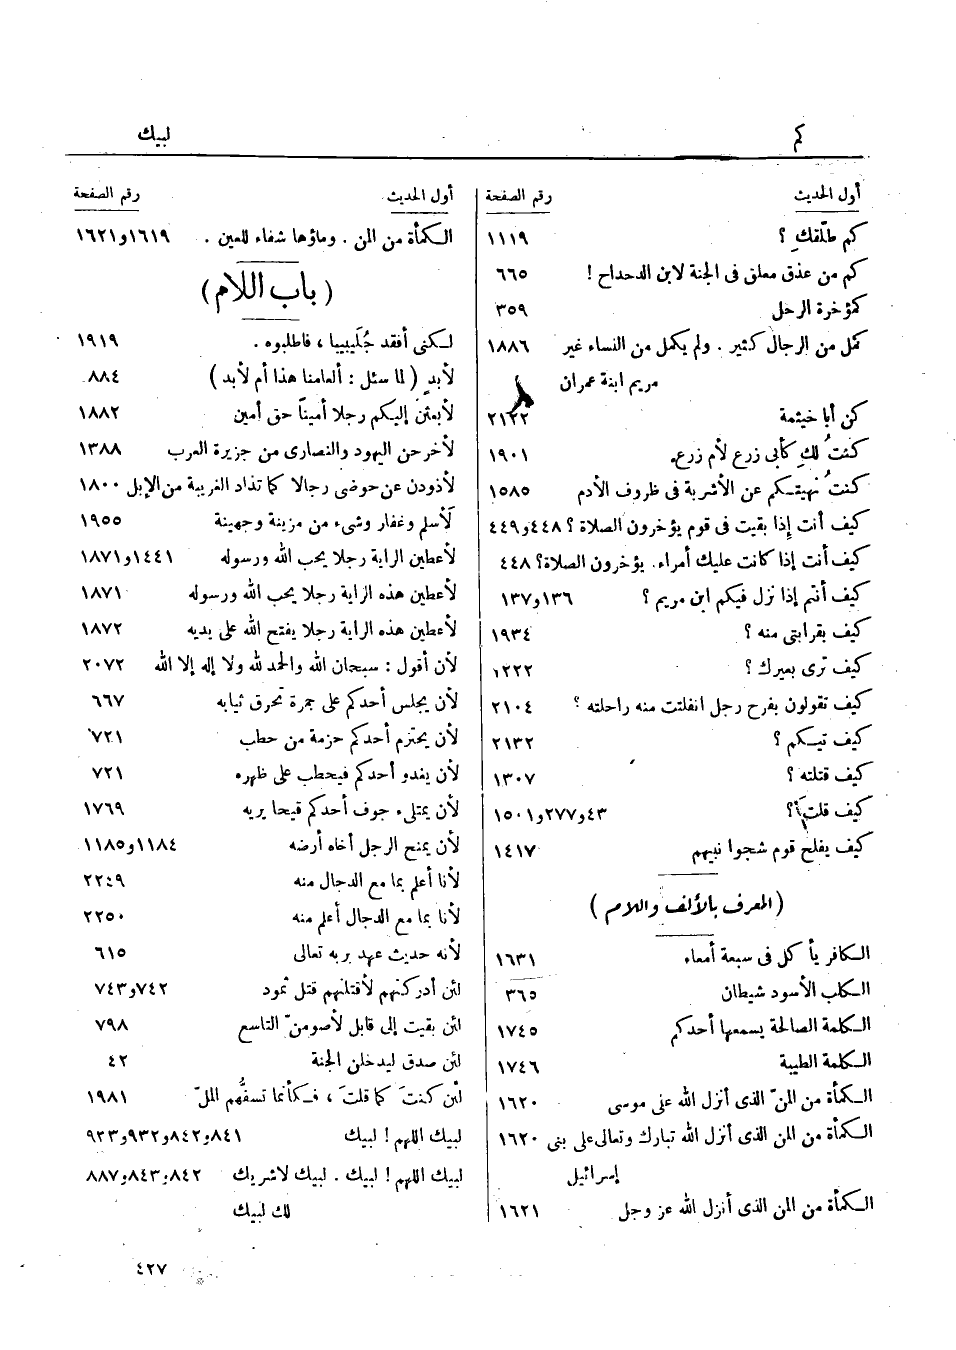 كم
لبيك
أول الحديث رقم الصفحة
كم طلّقكِ ؟ ١١١٩
كم من عذق معلق فى الجنة لابن الدحداح ! ٦٦٥
كمؤخرة الرحل ٣٥٩
كمُل من الرجال كثير . ولم يكمل من النساء غير ١٨٨٦
مريم ابنة عمران
كن أبا خيثمة ٢١٢٢
كنتُ لكِ كأبى زرع لأم زرع. ١٩٠١
كنتُ نهيتكم عن الأشربة فى ظروف الأدم ١٥٨٥
كيف أنت إذا بقيت فى قوم يؤخرون الصلاة ؟ ٤٤٨و٤٤٩
كيف أنت إذا كانت عليك أمراء. يؤخرون الصلاة؟ ٤٤٨
كيف أنتم إذا نزل فيكم ابن مريم ؟ ١٣٦و١٣٧
كيف بقرابتى منه ؟ ١٩٣٤
كيف ترى بعيرك ؟ ١٢٢٢
كيف تقولون بفرح رجل انفلتت منه راحلته ؟ ٢١٠٤
كيف تيكم ؟ ٢١٣٢
كيف قتلته ؟ ١٣٠٧
كيف قلتَ؟ ٤٣و٢٧٧و١٥٠١
كيف يفلح قوم شجوا نبيهم ١٤١٧
( المعرف بالألف واللام )
الكافر يأكل فى سبعة أمعاء ١٦٣١
الكلب الأسود شيطان ٣٦٥
الكلمة الصالحة يسمعها أحدكم ١٧٤٥
الكلمة الطيبة ١٧٤٦
الكمأة من المنّ الذى أنزل الله على موسى ١٦٢٠
الكمأة من المن الذى أنزل الله تبارك وتعالى على بنى ١٦٢٠
إسرائيل
الكمأة من المن الذى أنزل الله عز وجل ١٦٢١
أول الحديث رقم الصفحة
الكمأة من المن . وماؤها شفاء للعين . ١٦١٩و١٦٢١
( باب اللام )
لكنى أفقد جُلَيبيبا ، فاطلبوه . ١٩١٩
لأبدٍ ( لما سئل : ألعامنا هذا أم لأبد ) ٨٨٤
لأبعثن إليكم رجلا أميناً حق أمين ١٨٨٢
لأخرجن اليهود والنصارى من جزيرة العرب ١٣٨٨
لأذودن عن حوضى رجالا كما تذاد الغريبة من الإبل ١٨٠٠
لَأسلم وغفار وشىء من مزينة وجهينة ١٩٥٥
لأعطين الراية رجلا يحب الله ورسوله ١٤٤١و١٨٧١
لأعطين هذه الراية رجلا يحب الله ورسوله ١٨٧١
لأعطين هذه الراية رجلا يفتح الله على يديه ١٨٧٢
لأن أقول : سبحان الله والحمد لله ولا إله إلا الله ٢٠٧٢
لأن يجلس أحدكم على جمرة تحرق ثيابه ٦٦٧
لأن يحتزم أحدكم حزمة من حطب ٧٢١
لأن يغدو أحدكم فيحطب على ظهره ٧٢١
لأن يمتلىء جوف أحدكم قيحا يريه ١٧٦٩
لأن يمنح الرجل أخاه أرضه ١١٨٤و١١٨٥
لأنا أعلم بما مع الدجال منه ٢٢٤٩
لأنا بما مع الدجال أعلم منه ٢٢٥٠
لأنه حديث عهد بربه تعالى ٦١٥
لئن أدركتهم لأقتلنهم قتل ثمود ٧٤٢و٧٤٣
لئن بقيت إلى قابل لأصومنّ التاسع ٧٩٨
لئن صدق ليدخلن الجنة ٤٢
لئن كنتَ كما قلتَ ، فكأنما تسفُّهم الملّ ١٩٨١
لبيك اللهم ! لبيك ٨٤١و٨٤٢و٩٣٢و٩٢٣
لبيك اللهم ! لبيك . لبيك لا شريك ٨٤٢و٨٤٣و٨٨٧
لك لبيك
٤٢٧